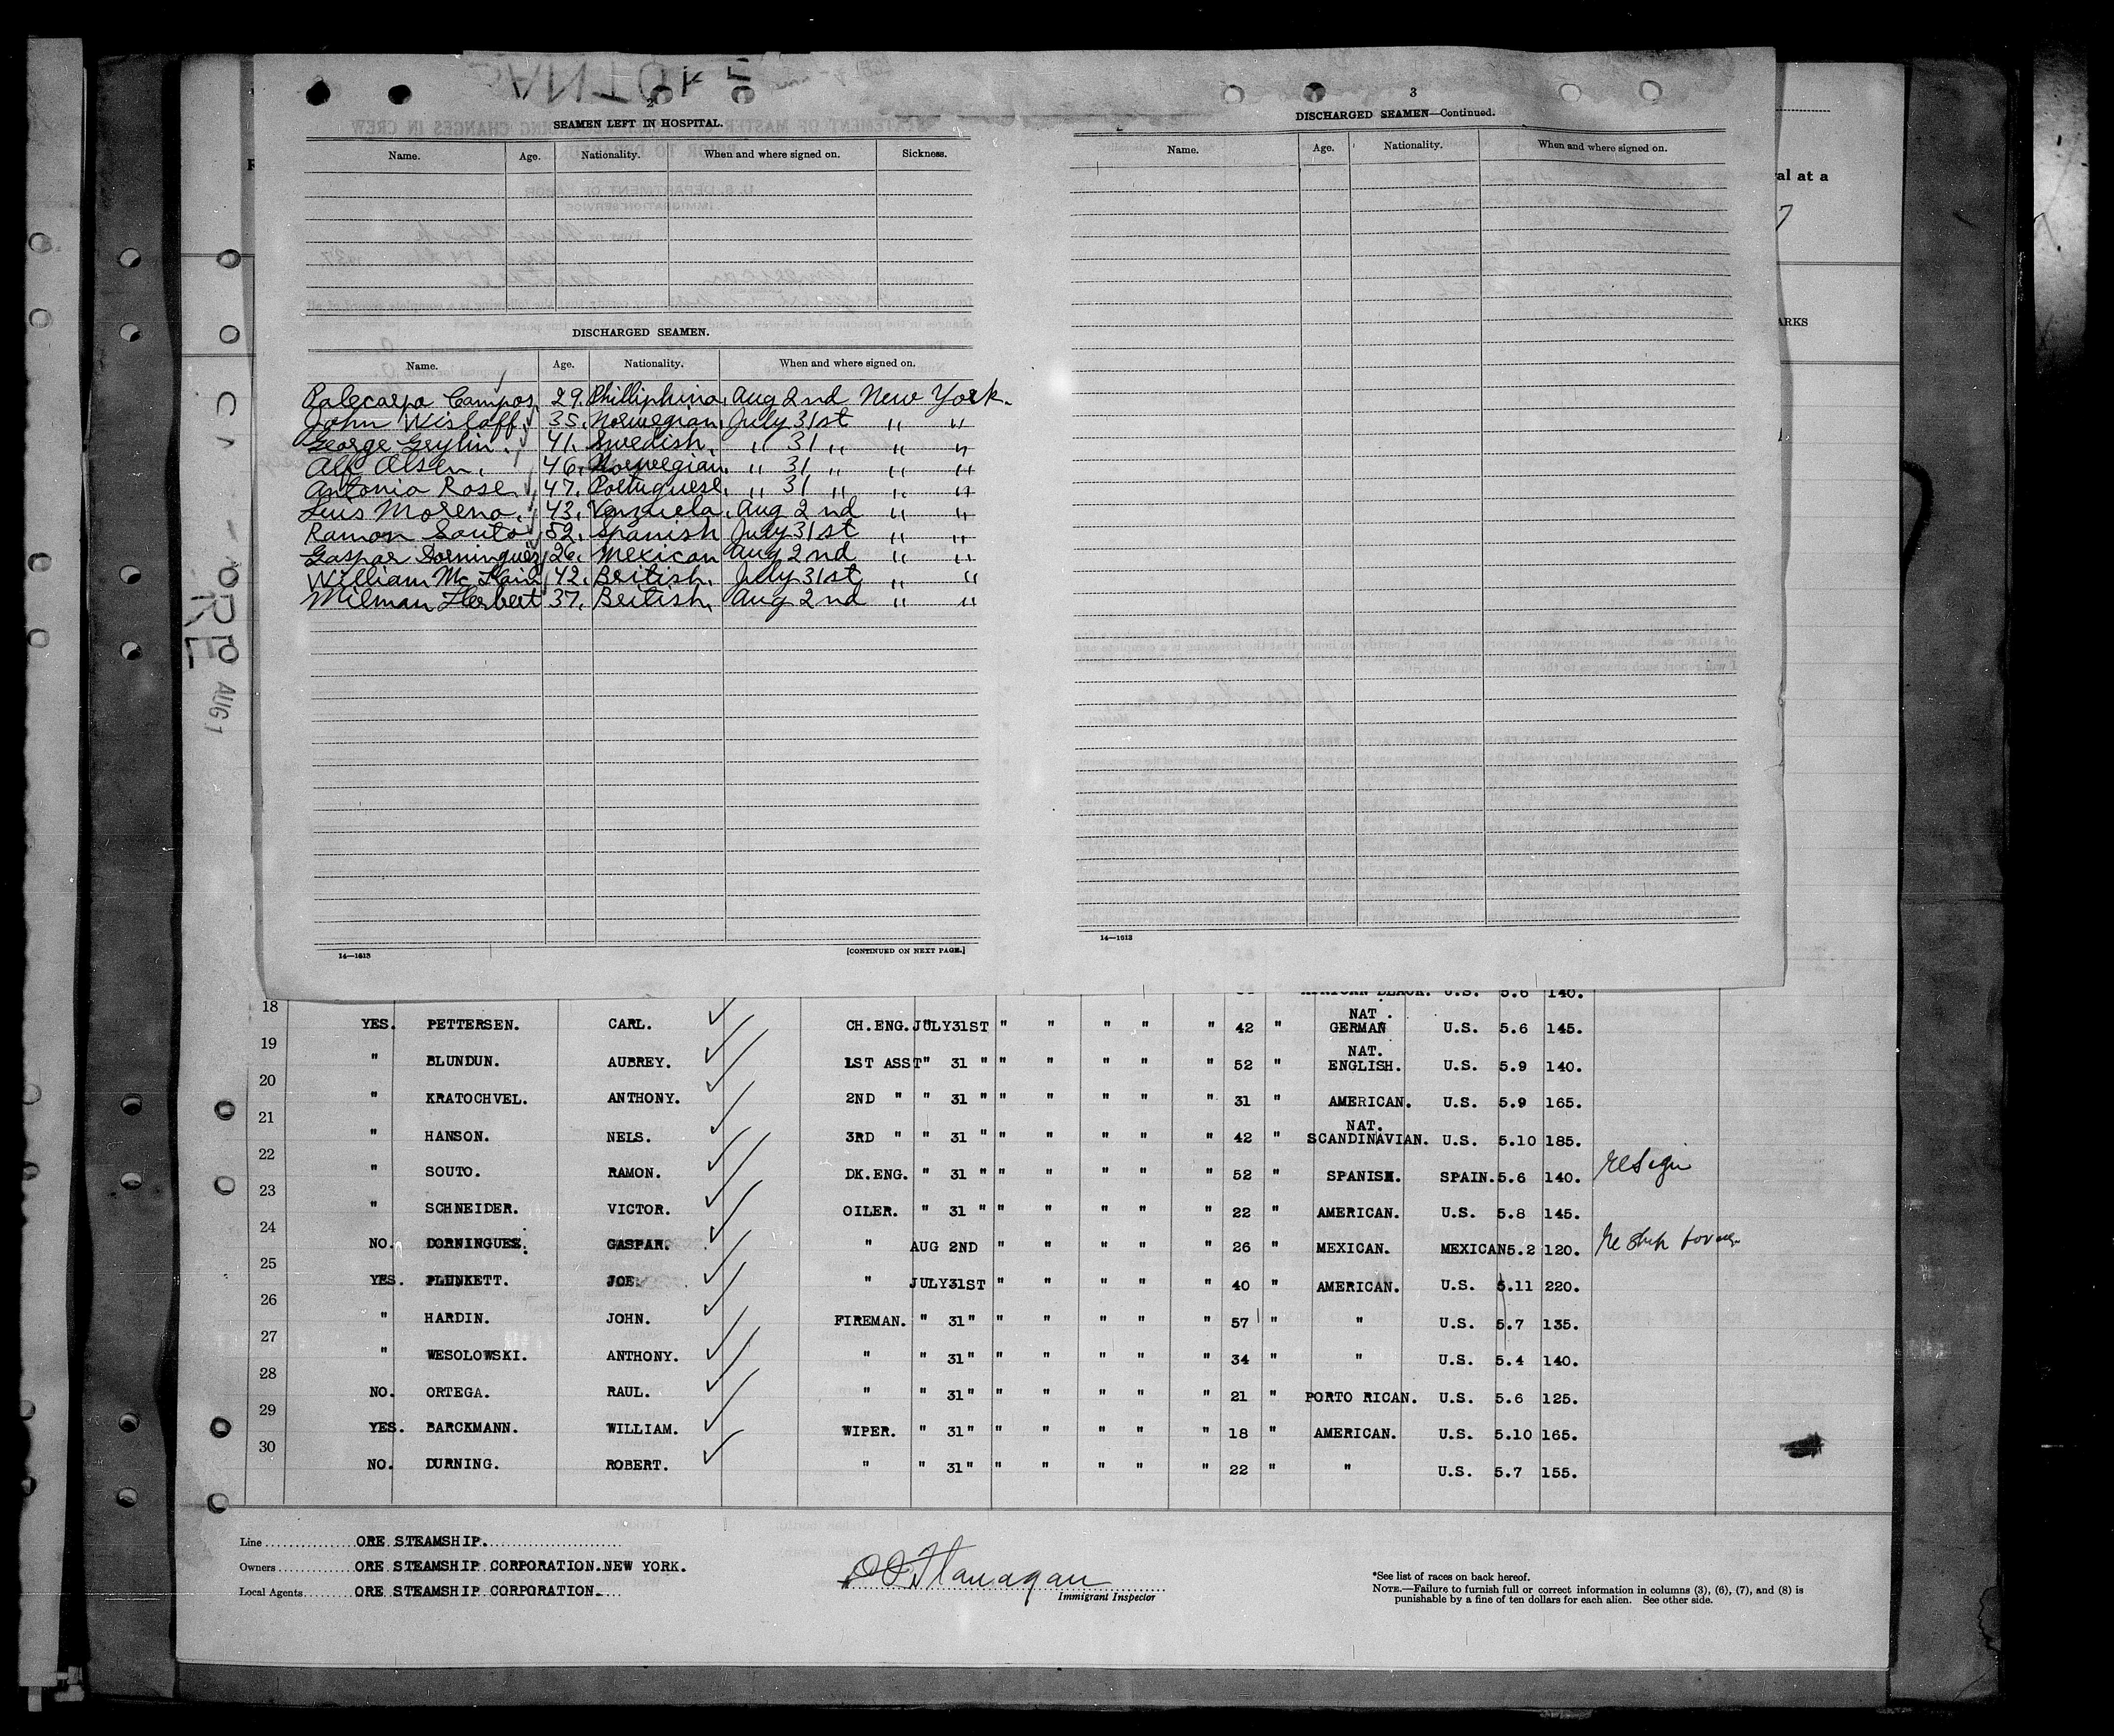 2
SEAMEN LEFT IN HOSPITAL.
Name. Age. Nationality. When and where signed on. Sickness.
DISCHARGED SEAMEN.
Name. Age. Nationality. When and where signed on.
Palecarpo Campos. 29. Philliphina. Aug 2nd New York.
John Wislaff. 35. Norwegian. July 31st " "
George Geylin. 41. Swedish. " 31 " " "
Alf Olsen. 46. Norwegian. " 31 " " "
Antonia Rose. 47. Portuguese. " 31 " " "
Luis Moreno. 43. Venzuela. Aug 2nd " "
Ramon Souto 52. Spanish July 31st " "
Gaspar Dorninguez 26. Mexican Aug 2nd " "
William Mc 42. British. July 31st " "
Milman Herbert 37. British. Aug 2nd " "
14—1613 [CONTINUED ON NEXT PAGE.]
3
DISCHARGED SEAMEN—Continued.
Name. Age. Nationality. When and where signed on.
14—1613
al at a
7
ARKS
AUG 1
AFRICAN BLACK. U.S. 5.6 140.
18 YES. PETTERSEN. CARL. CH.ENG. JULY31ST " " " " " 42 " NAT. GERMAN U.S. 5.6 145.
19 " BLUNDUN. AUBREY. 1ST ASST " 31 " " " " " " 52 " NAT. ENGLISH. U.S. 5.9 140.
20 " KRATOCHVEL. ANTHONY. 2ND " " 31 " " " " " " 31 " AMERICAN. U.S. 5.9 165.
21 " HANSON. NELS. 3RD " " 31 " " " " " " 42 " NAT. SCANDINAVIAN. U.S. 5.10 185.
22 " SOUTO. RAMON. DK.ENG. " 31 " " " " " " 52 " SPANISH. SPAIN. 5.6 140. resign
23 " SCHNEIDER. VICTOR. OILER. " 31 " " " " " " 22 " AMERICAN. U.S. 5.8 145.
24 NO. DORNINGUEZ. GASPAR. " AUG 2ND " " " " " 26 " MEXICAN. MEXICAN 5.2 120. re ship
25 YES. PLUNKETT. JOE. " JULY31ST " " " " " 40 " AMERICAN. U.S. 5.11 220.
26 " HARDIN. JOHN. FIREMAN. " 31 " " " " " " 57 " " U.S. 5.7 135.
27 " WESOLOWSKI. ANTHONY. " " 31 " " " " " " 34 " " U.S. 5.4 140.
28 NO. ORTEGA. RAUL. " " 31 " " " " " " 21 " PORTO RICAN. U.S. 5.6 125.
29 YES. BARCKMANN. WILLIAM. WIPER. " 31 " " " " " " 18 " AMERICAN. U.S. 5.10 165.
30 NO. DURNING. ROBERT. " " 31 " " " " " " 22 " " U.S. 5.7 155.
Line ORE STEAMSHIP.
Owners ORE STEAMSHIP CORPORATION. NEW YORK.
Local Agents ORE STEAMSHIP CORPORATION.
Flanagan
Immigrant Inspector
*See list of races on back hereof.
NOTE.—Failure to furnish full or correct information in columns (3), (6), (7), and (8) is
punishable by a fine of ten dollars for each alien. See other side.